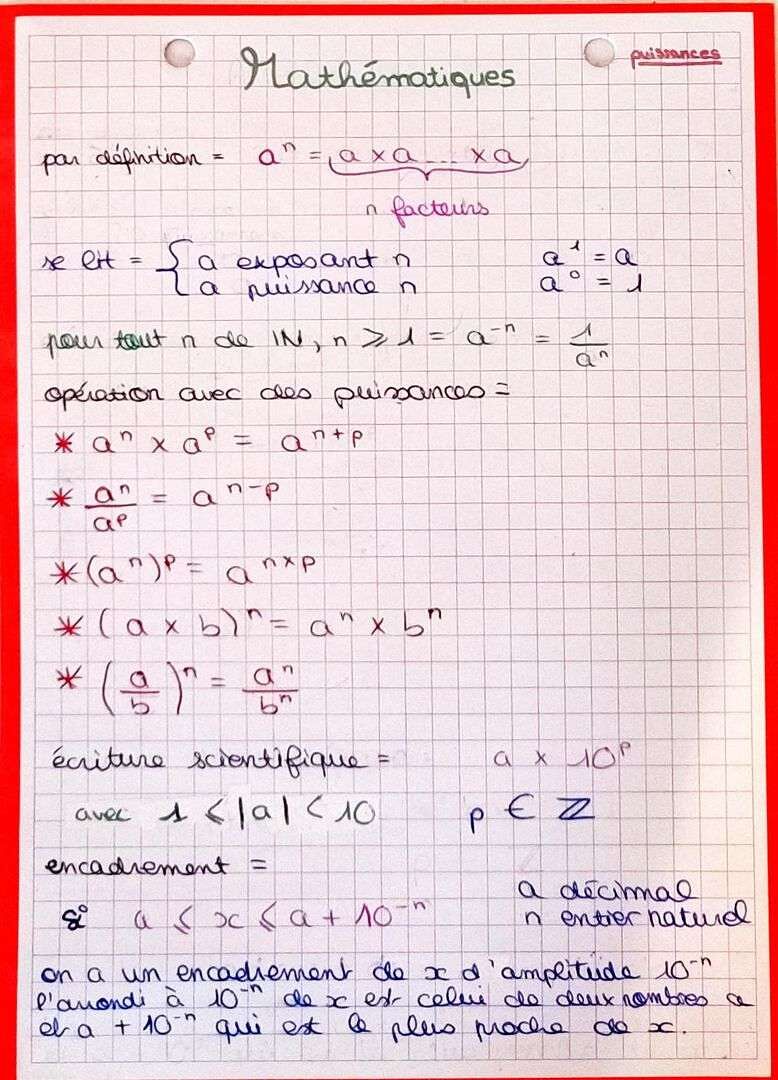 Mathématiques
puissances
par définition = aⁿ = a × a .... × a
n facteurs
se lit = { a exposant n a¹ = a
a puissance n a⁰ = 1
pour tout n de ℕ, n ⩾ 1 = a⁻ⁿ = 1/aⁿ
opération avec des puissances =
* aⁿ × aᵖ = aⁿ⁺ᵖ
* aⁿ/aᵖ = aⁿ⁻ᵖ
* (aⁿ)ᵖ = aⁿˣᵖ
* (a × b)ⁿ = aⁿ × bⁿ
* (a/b)ⁿ = aⁿ/bⁿ
écriture scientifique = a × 10ᵖ
avec 1 ⩽ |a| < 10 p ∈ ℤ
encadrement =
a décimal
si a ⩽ x ⩽ a + 10⁻ⁿ n entier naturel
on a un encadrement de x d'amplitude 10⁻ⁿ
l'arrondi à 10⁻ⁿ de x est celui de deux nombres a
et a + 10⁻ⁿ qui est le plus proche de x.